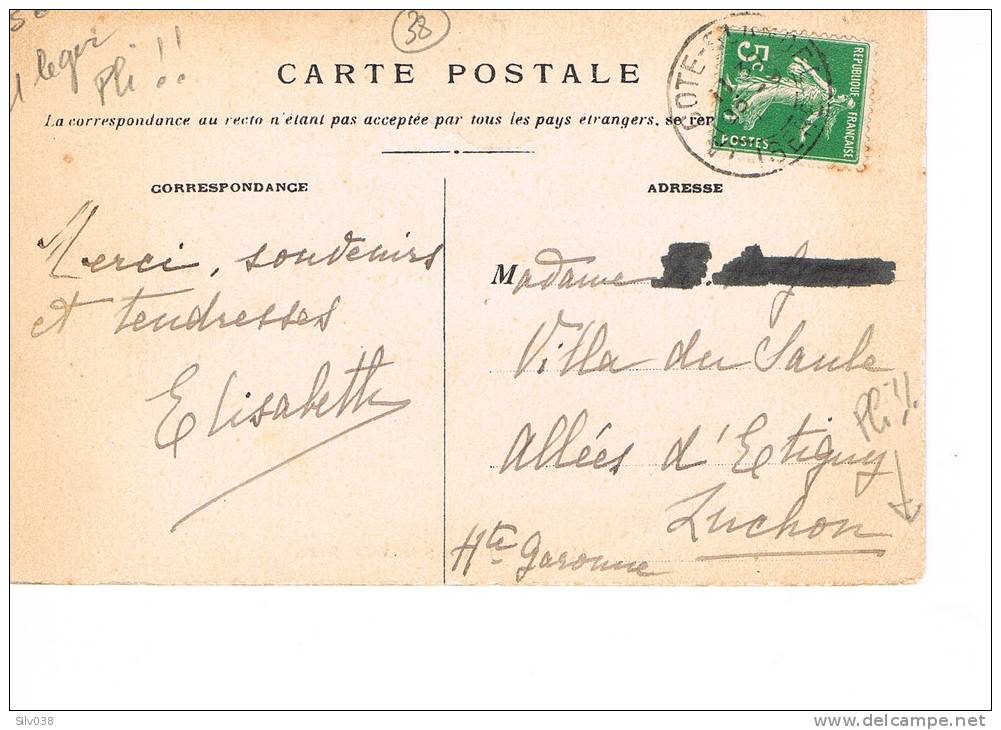 1 leger
Pli !!
38
CARTE POSTALE
La correspondance au recto n'étant pas acceptée par tous les pays étrangers, se
CORRESPONDANCE
Merci, souvenirs
et tendresses
Elisabeth
5c
REPUBLIQUE FRANÇAISE
POSTES
ADRESSE
Madame
Villa du Saule
Allées d'Etigny
Luchon
Hte Garonne
Pli !!
Silv038
www.delcampe.net